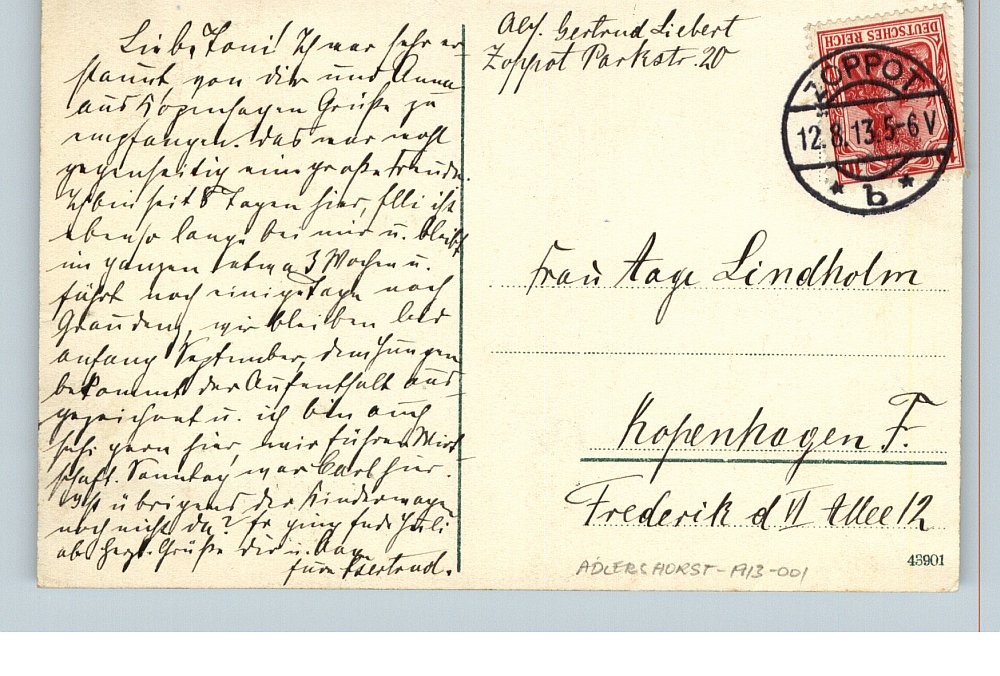 Liebe Toni! Ich war sehr er-
staunt von dir und Anna
aus Kopenhagen Grüße zu
empfangen. Das war wohl
gegenseitig eine große Freude.
Ich bin seit 8 Tagen hier, Elli ist
ebenso lange bei mir u. bleibt
im ganzen etwa 3 Wochen u.
fährt noch einige Tage nach
Graudenz, wir bleiben bis
anfang September, dem Jungen
bekommt der Aufenthalt aus-
gezeichnet u. ich bin auch
sehr gern hier, wir führen Wirt-
schaft. Sonntag war Carl hier.
Ist übrigens der Kinderwagen
noch nicht da? Er ging Ende Juli
ab. Herzl. Grüße Dir u. Aage
Eure Gertrud.
Abs. Gertrud Liebert
Zoppot Parkstr. 20
DEUTSCHES REICH
10
ZOPPOT
12.8.13.5-6V
* b *
Frau Aage Lindholm
Kopenhagen F.
Frederik d VI Allee 12
43901
ADLERSHORST-1913-001